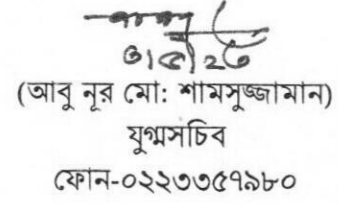 ৩।৫।২৫
(আবু নূর মো: শামসুজ্জামান)
যুগ্মসচিব
ফোন-০২২৩৩৫৭৯৮০